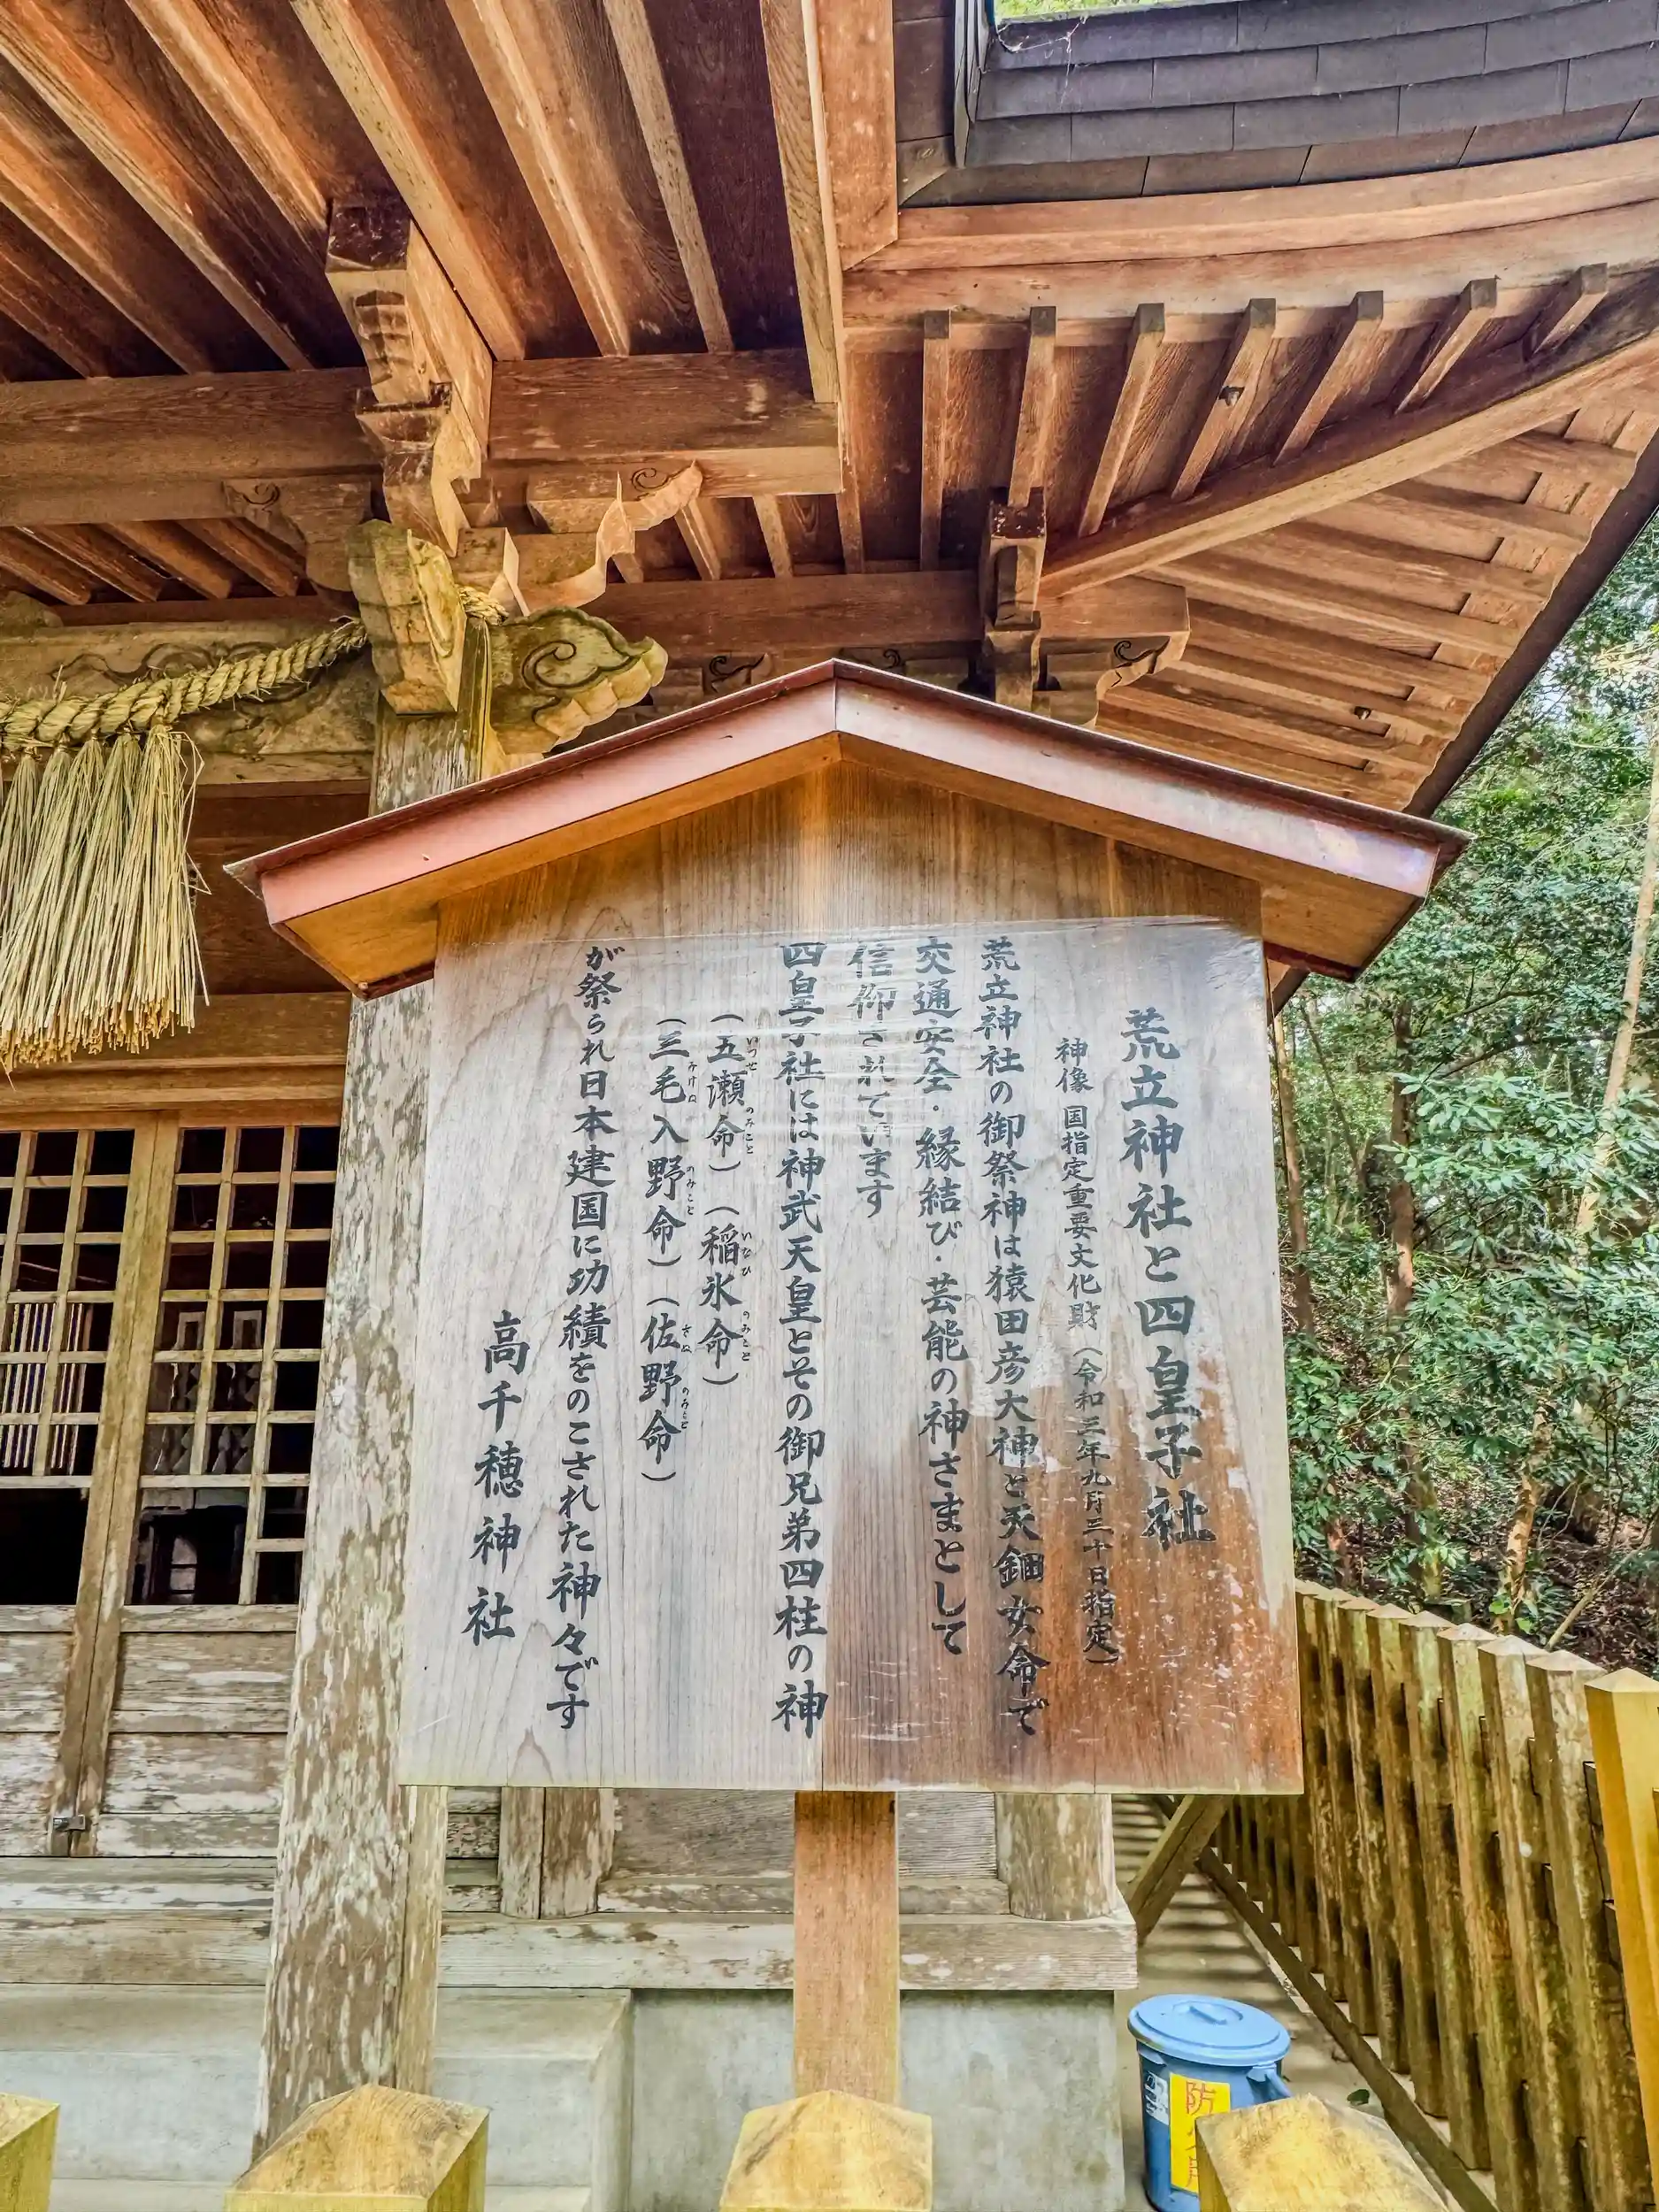 荒立神社と四皇子社
神像 国指定重要文化財（令和三年九月三十日指定）
荒立神社の御祭神は猿田彦大神と天鈿女命で
交通安全・縁結び・芸能の神さまとして
信仰されています
四皇子社には神武天皇とその御兄弟四柱の神
（五瀬命）（稲氷命）
いつせ のみこと いなひ のみこと
（三毛入野命）（佐野命）
みけぬ のみこと さぬ のみこと
が祭られ日本建国に功績をのこされた神々です
高千穂神社
防火用